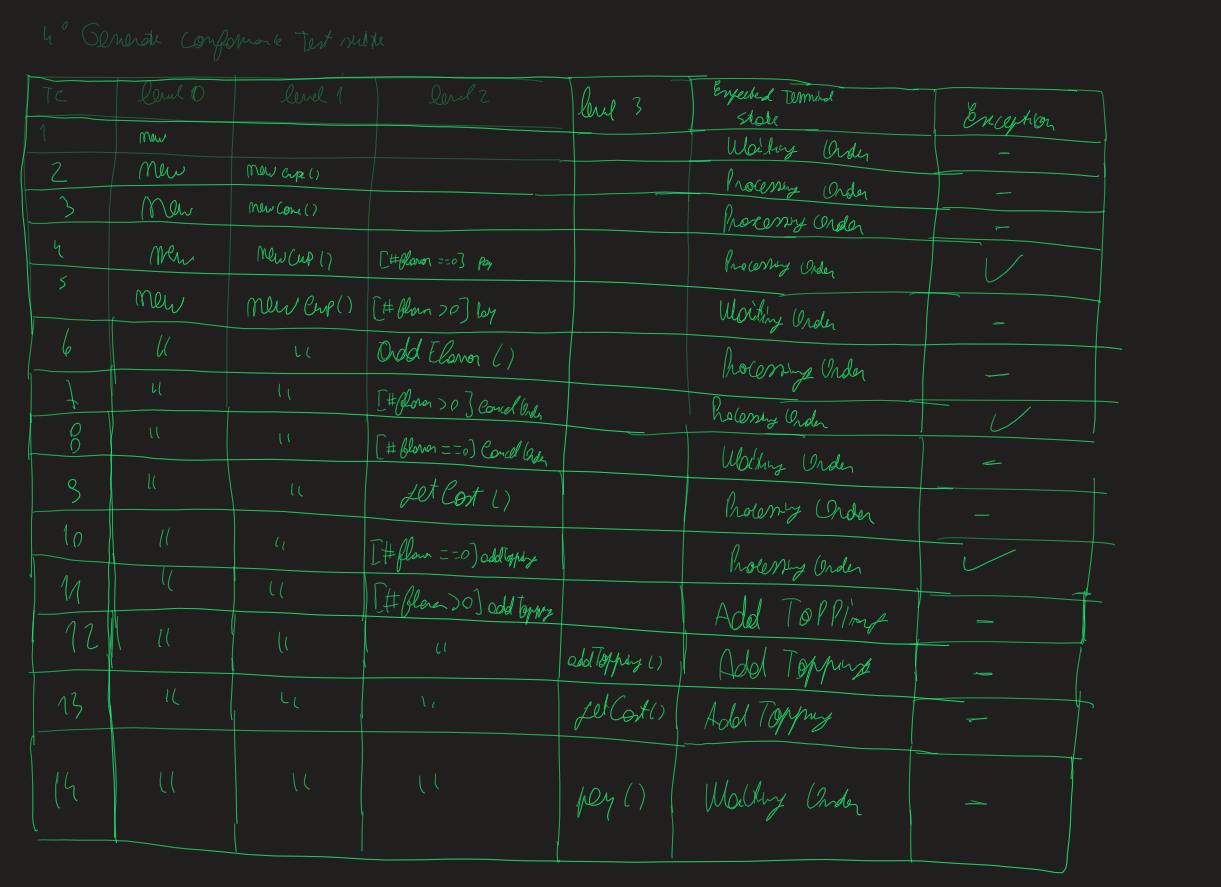 4° Generate conformance Test suite
TC level 0 level 1 level 2 level 3 Expected Terminal state Exception
1 new Waiting Order -
2 new newCup() Processing Order -
3 new newCone() Processing Order -
4 new newCup() [#flavor ==0] pay Processing Order ✓
5 new newCup() [#flavor >0] pay Waiting Order -
6 " " addFlavor () Processing Order -
7 " " [#flavor >0] CancelOrder Processing Order ✓
8 " " [#flavor ==0] CancelOrder Waiting Order -
9 " " getCost () Processing Order -
10 " " [#flavor ==0] addTopping Processing Order ✓
11 " " [#flavor >0] addTopping Add Topping -
12 " " " addTopping () Add Topping -
13 " " " getCost() Add Topping -
14 " " " pay () Waiting Order -